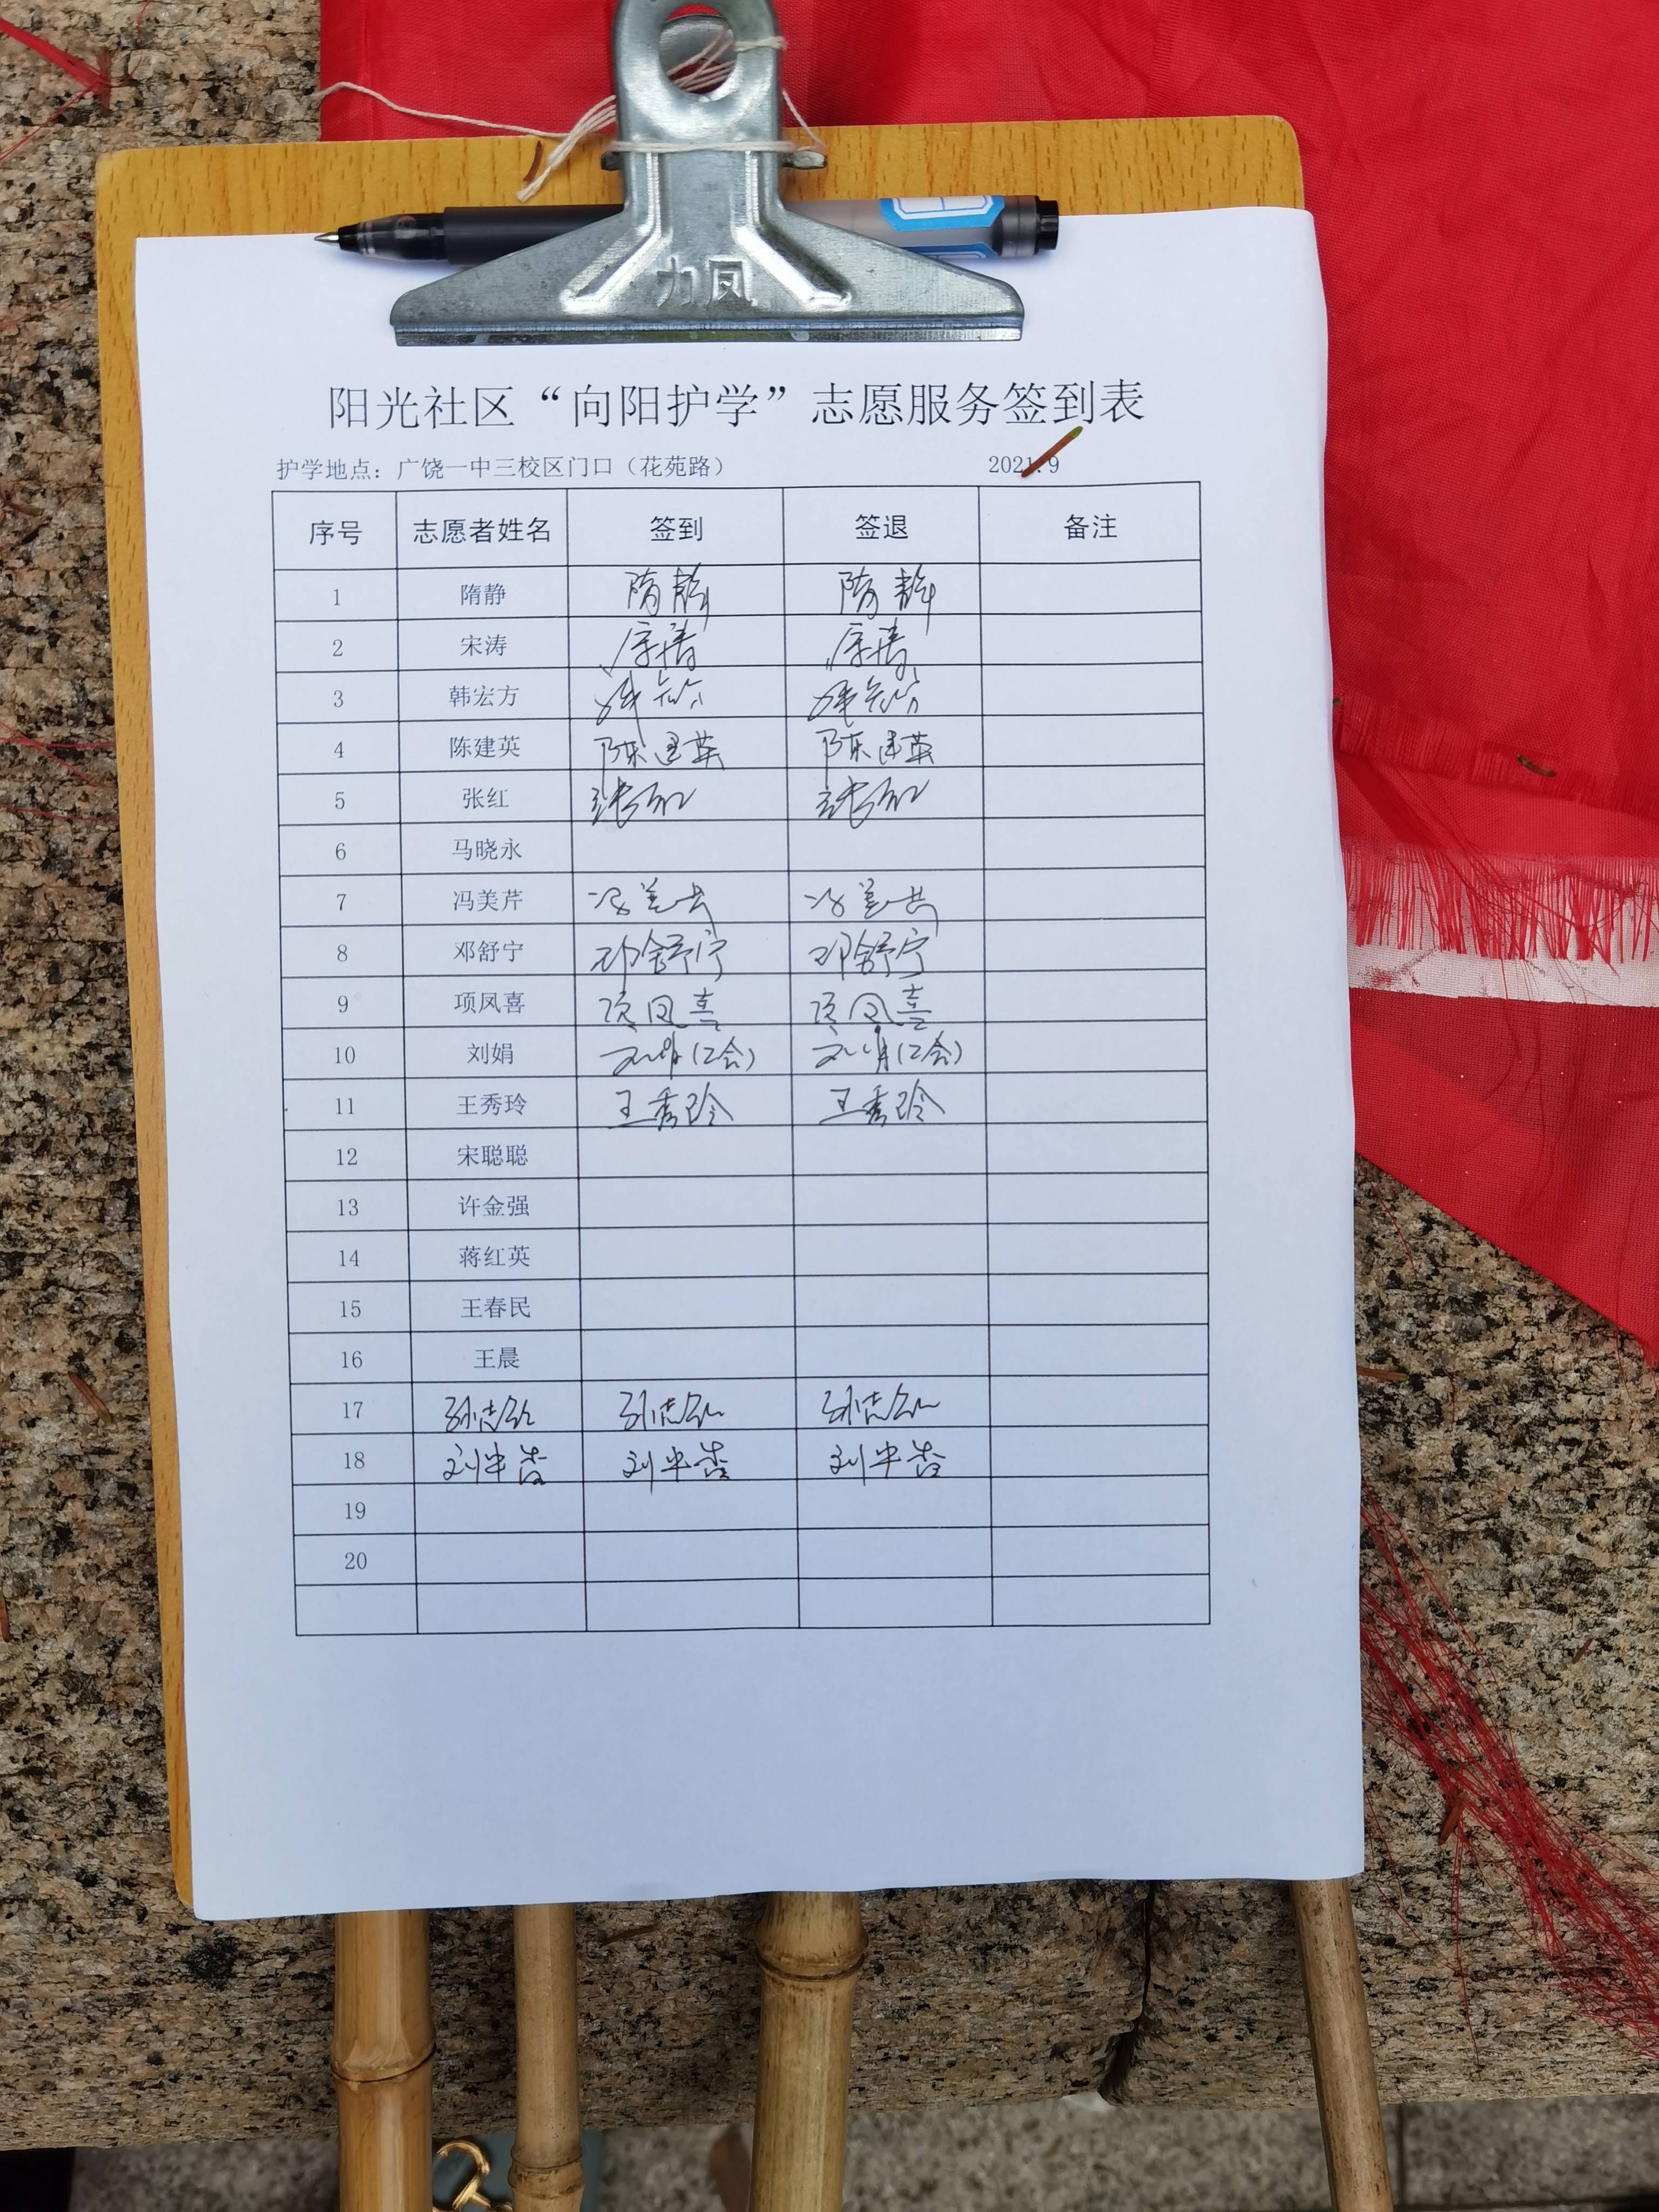 力风
阳光社区“向阳护学”志愿服务签到表
护学地点：广饶一中三校区门口（花苑路） 2021.9
序号 志愿者姓名 签到 签退 备注
1 隋静 隋静 隋静
2 宋涛 宋涛 宋涛
3 韩宏方 韩宏方 韩宏方
4 陈建英 陈建英 陈建英
5 张红 张红 张红
6 马晓永
7 冯美芹 冯美芹 冯美芹
8 邓舒宁 邓舒宁 邓舒宁
9 项凤喜 项凤喜 项凤喜
10 刘娟 刘娟(工会) 刘娟(工会)
11 王秀玲 王秀玲 王秀玲
12 宋聪聪
13 许金强
14 蒋红英
15 王春民
16 王晨
17
18 刘半杏 刘半杏 刘半杏
19
20